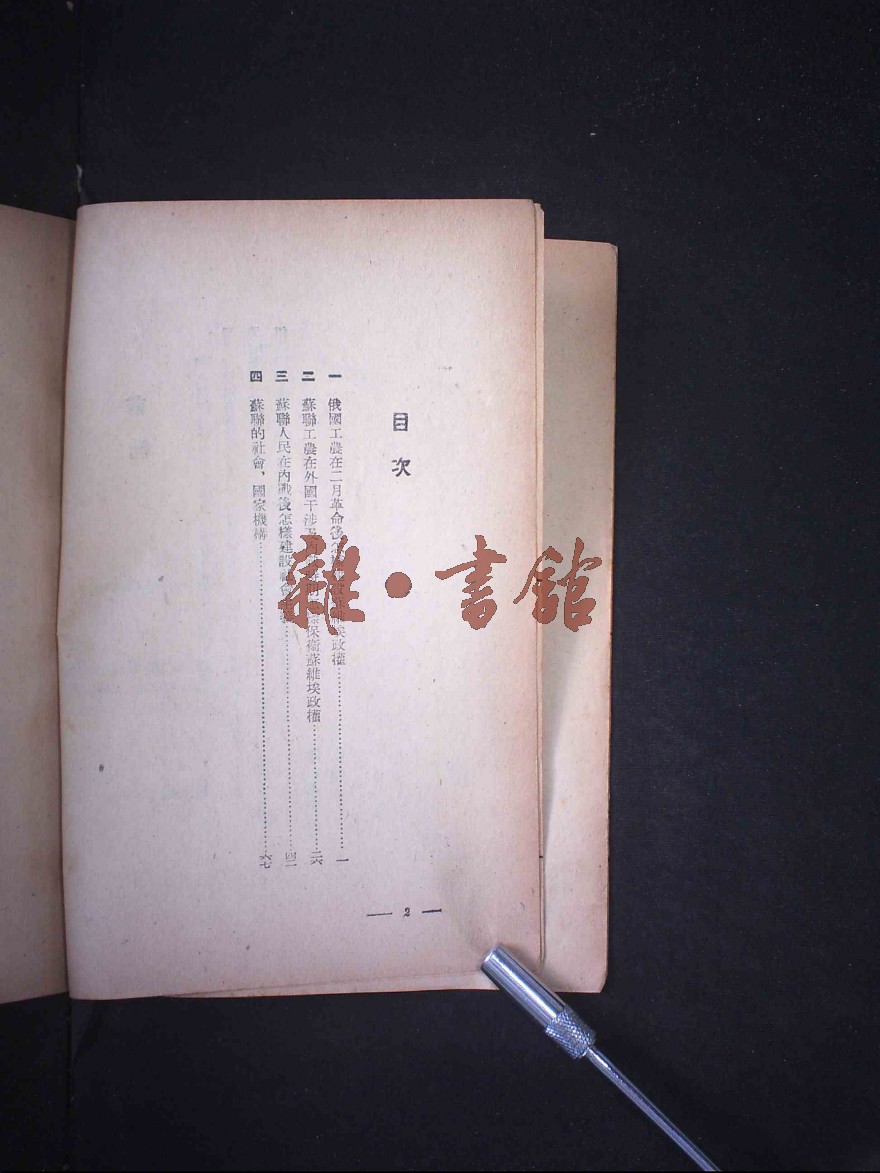 目次
一 俄國工農在二月革命後怎樣 蘇維埃政權 一
二 蘇聯工農在外國干涉及 保衛蘇維埃政權 二六
三 蘇聯人民在內戰後怎樣建設社會主義 四二
四 蘇聯的社會、國家機構 六七
— 2 —
雜·書館